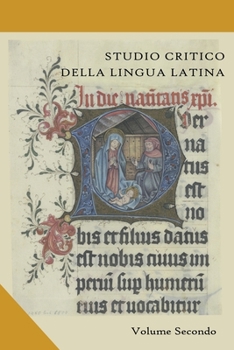 STUDIO CRITICO
DELLA LINGUA LATINA
In die natītatis xp̄i.
P
uer
na
tus
est
no
bis et filius datus
est nobis cuius im
periū sup humerū
eius et vocabitur
Volume Secondo